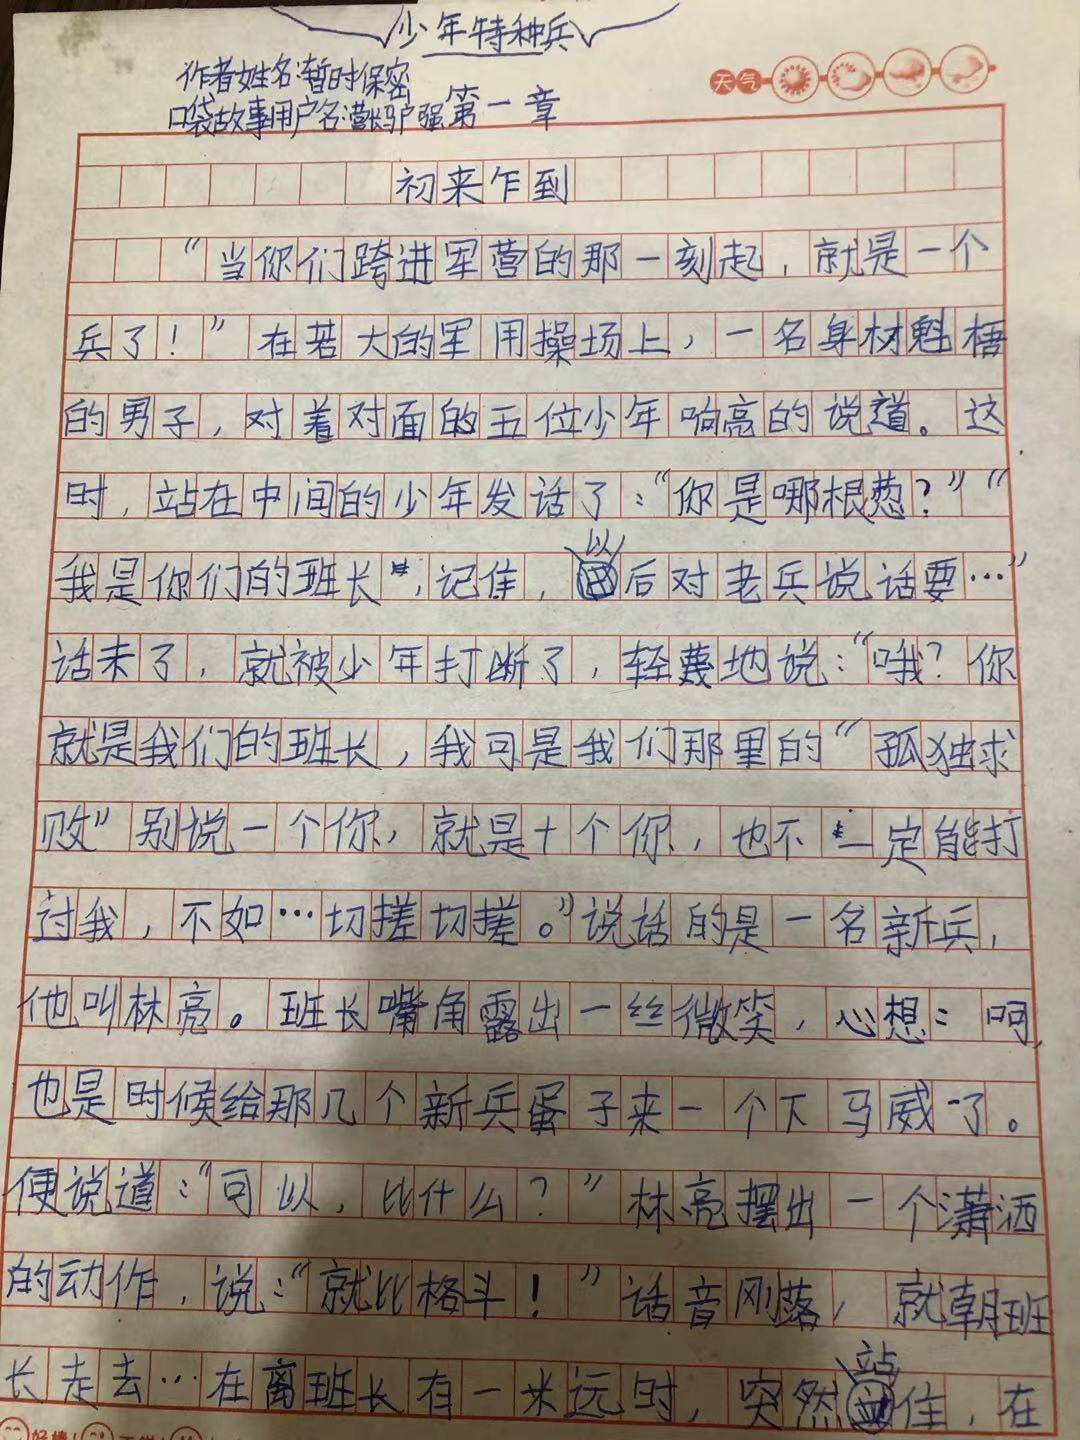 少年特种兵
作者姓名:暂时保密
天气
口袋故事用户名:营长驴强 第一章
初来乍到
“当你们跨进军营的那一刻起，就是一个
兵了！”在若大的军用操场上，一名身材魁梧
的男子，对着对面的五位少年响亮的说道。这
时，站在中间的少年发话了：“你是哪根葱？”“
我是你们的班长，记住，以后对老兵说话要…”
话未了，就被少年打断了，轻蔑地说：“哦？你
就是我们的班长，我可是我们那里的“孤独求
败”别说一个你，就是十个你，也不一定能打
过我，不如…切搓切搓。”说话的是一名新兵，
他叫林亮。班长嘴角露出一丝微笑，心想：呵，
也是时候给那几个新兵蛋子来一个下马威了。
便说道：“可以，比什么？”林亮摆出一个潇洒
的动作，说：“就比格斗！”话音刚落，就朝班
长走去…在离班长有一米远时，突然站住，在
好棒!